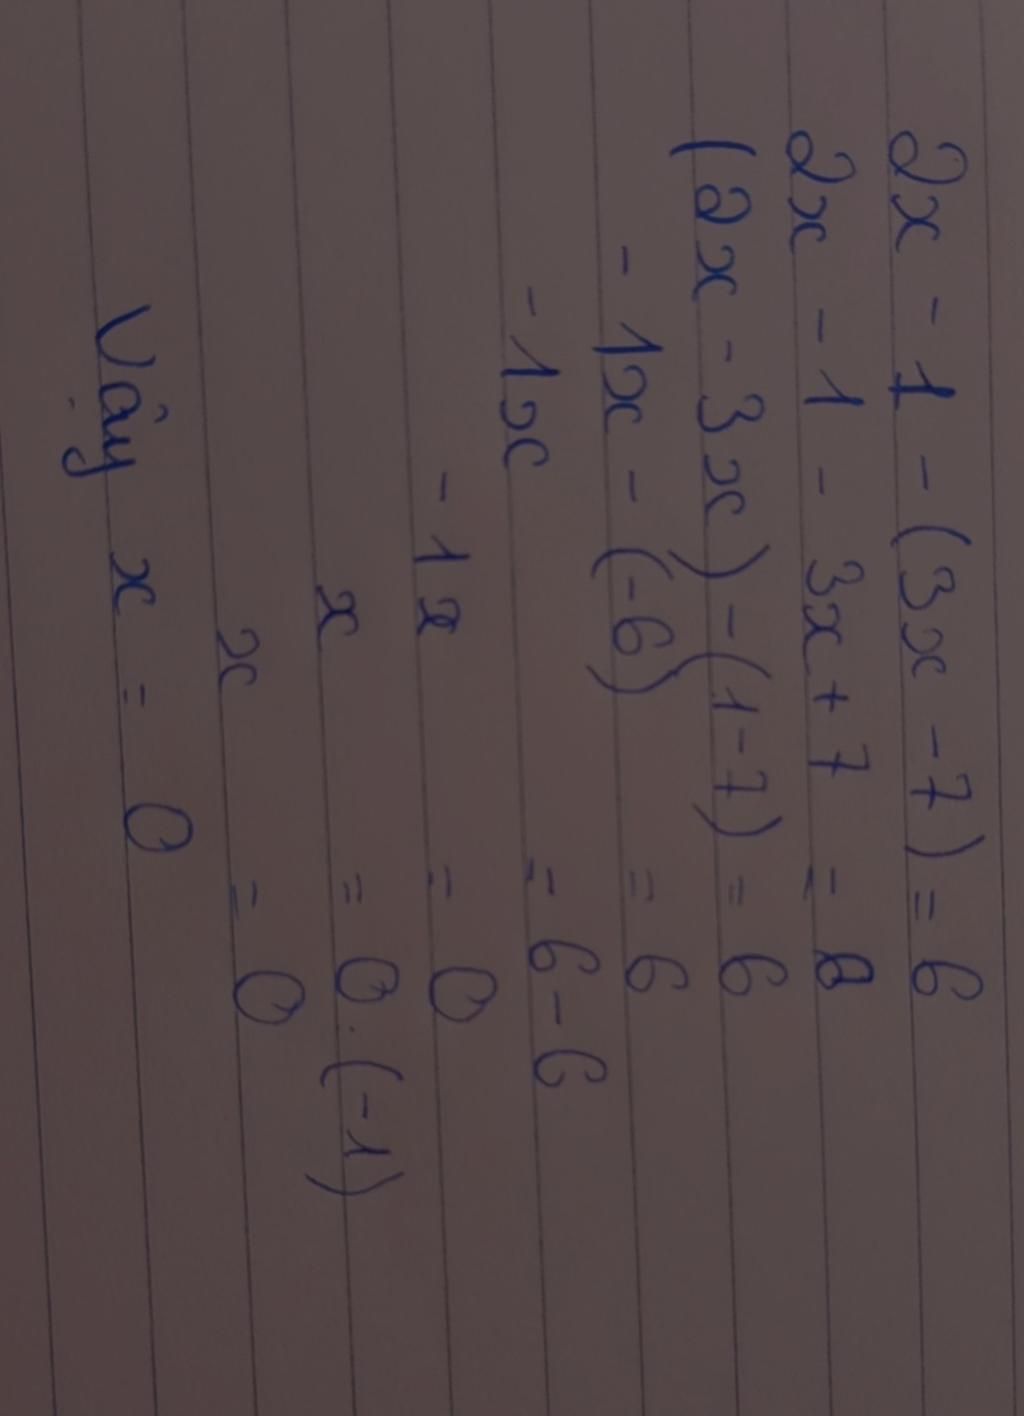 2x - 1 - (3x - 7) = 6
2x - 1 - 3x + 7 = 8
(2x - 3x) - (1 - 7) = 6
- 1x - (-6) = 6
- 1x = 6 - 6
- 1x = 0
x = 0 . (-1)
x = 0
Vậy x = 0